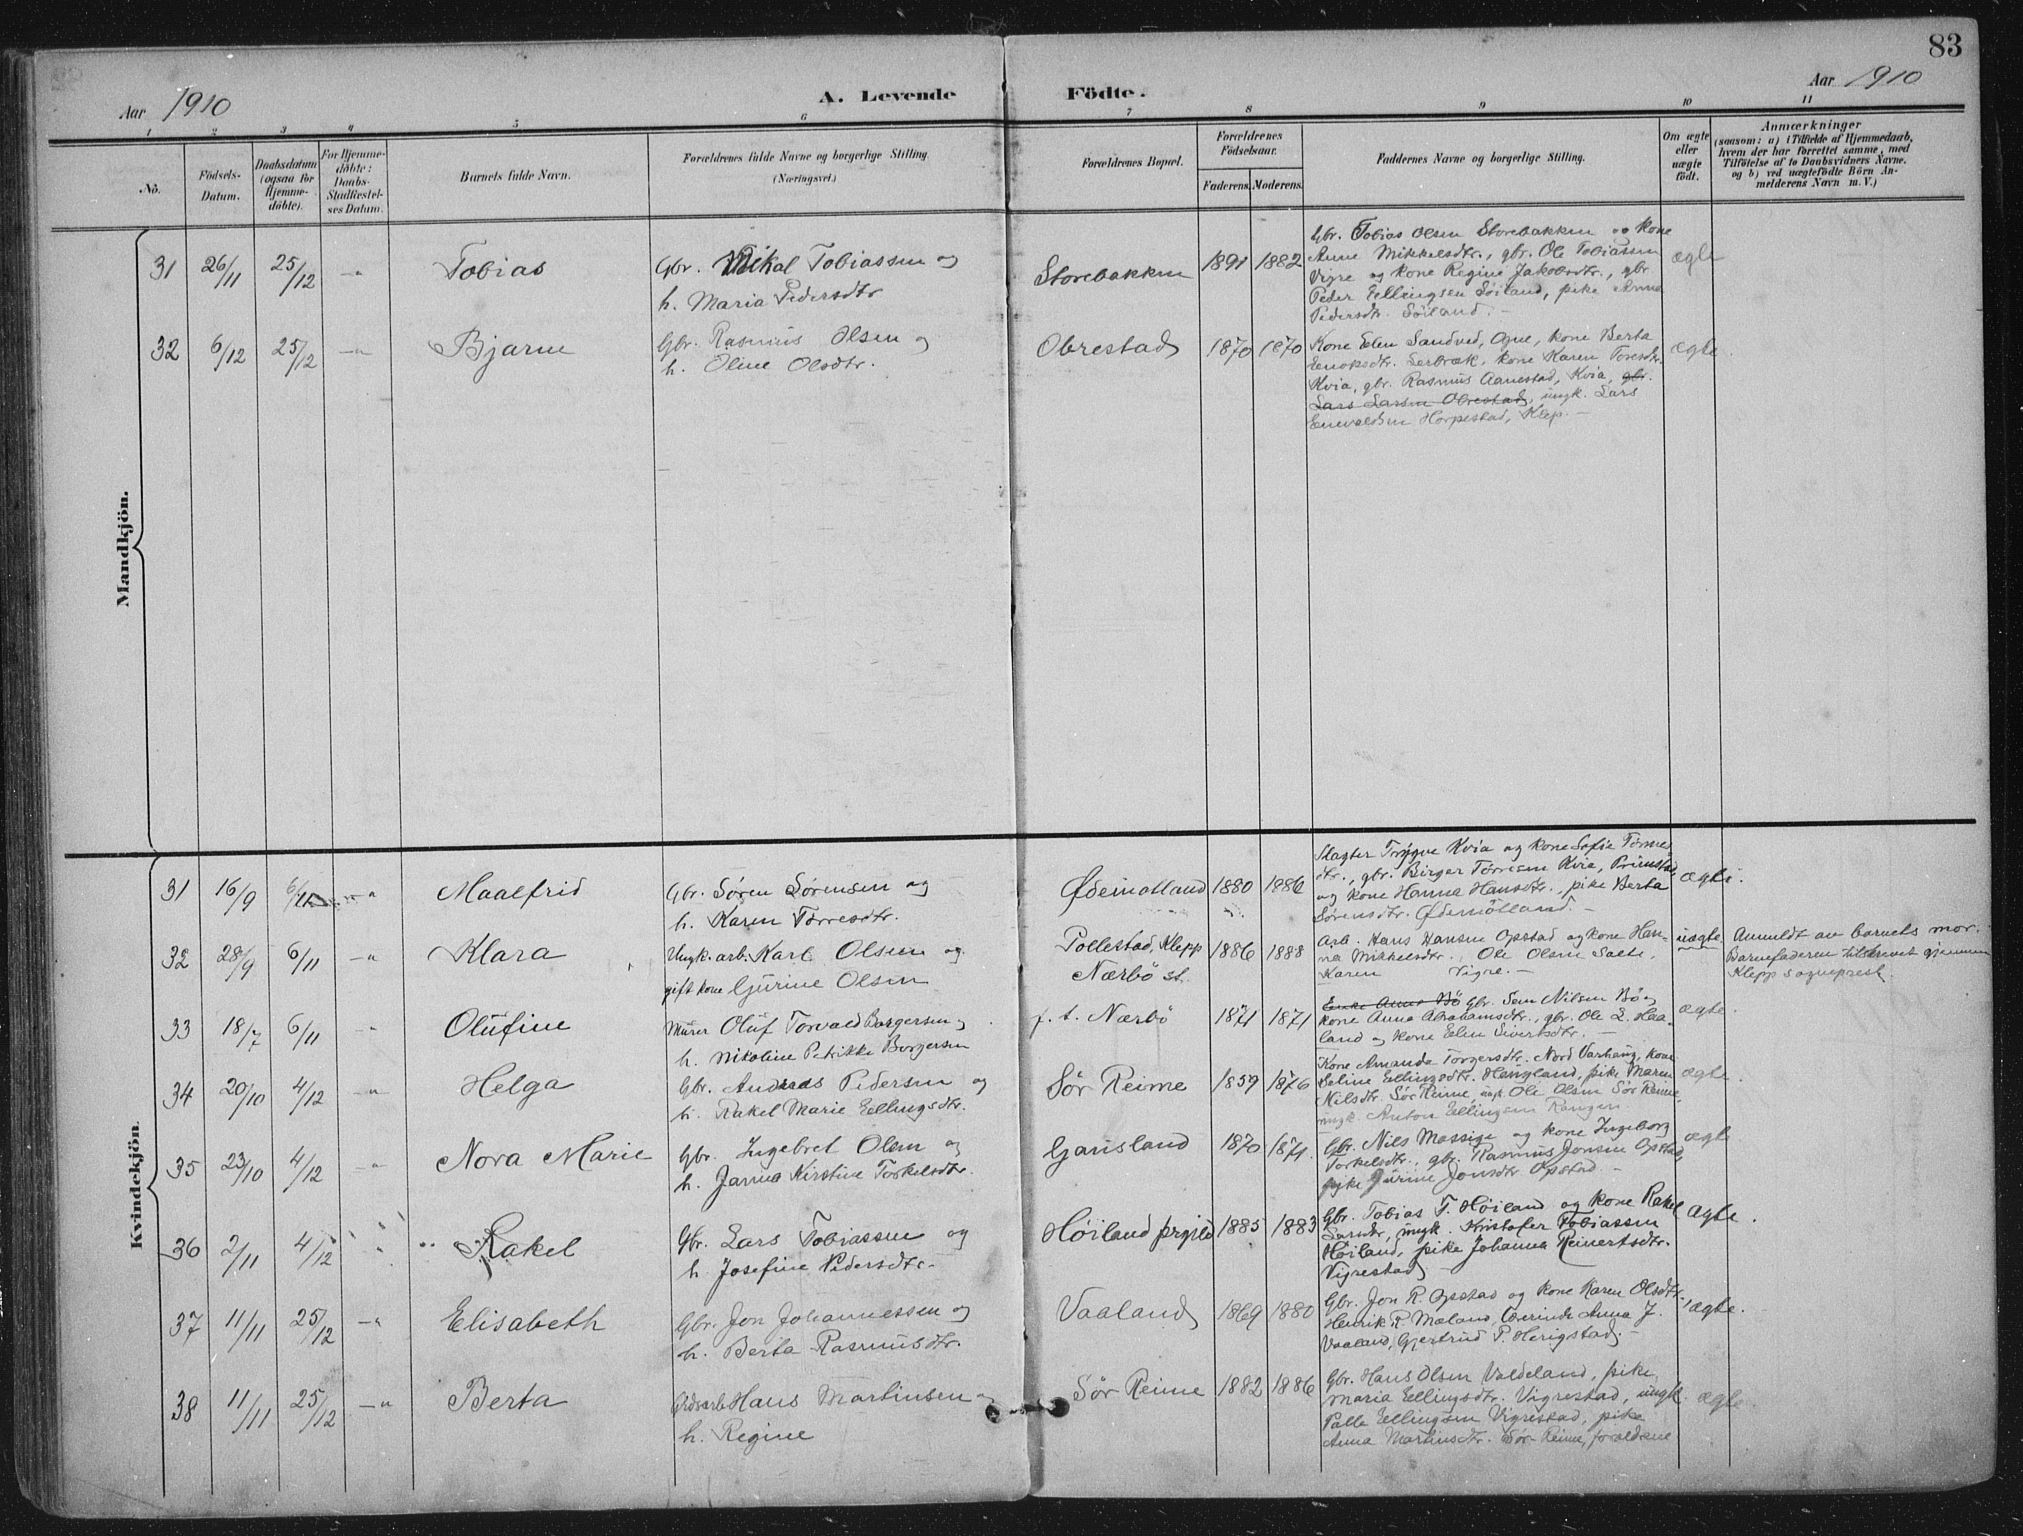 83
Aar 1910
A. Levende Födte.
Aar 1910
1 2 3 4 5 6 7 8 9 10 11
No.
Födsels-
Datum.
Daabsdatum
(ogsaa for
Hjemme-
döbte).
For Hjemme-
döbte:
Daabs-
Stadfæstel-
ses Datum.
Barnets fulde Navn.
Forældrenes fulde Navne og borgerlige Stilling.
(Næringsvei.)
Forældrenes Bopæl.
Forældrenes
Födselsaar.
Faderens. Moderens.
Faddernes Navne og borgerlige Stilling.
Om ægte
eller
uægte
födt.
Anmærkninger
(saasom: a) i Tilfælde af Hjemmedaab,
hvem der har forrettet samme, med
Tilföielse af to Daabsvidners Navne.
og b) ved uægtefödte Börn An-
melderens Navn m. V.)
Mandkjön.
31 26/11 25/12 -"- Tobias
Gbr. Mikal Tobiassen og
h. Maria Pedersdtr
Storebakken 1891 1882
Gbr. Tobias Olsen Storebakken og kone
Anne Mikkelsdtr., gbr. Ole Tobiassen
Vigre og kone Regine Jakobsdtr., gbr.
Peder Ellingsen Söiland, pike Anna
Pedersdtr. Söiland. -
ægte
32 6/12 25/12 -"- Bjarne
Gbr. Rasmus Olsen og
h. Oline Olsdtr.
Obrestad 1870 1870
Kone Elen Sandved, Ogne, kone Berta
Enoksdtr. Serbræk, kone Karen Toresdtr.
Kvia, gbr. Rasmus Aanestad, Kvia, gbr.
Lars Larsen Obrestad, ungk. Lars
Enevaldsen Horpestad, Klep. -
ægte.
Kvindekjön.
31 16/9 6/11 -"- Maalfrid
Gbr. Sören Sörensen og
h. Karen Torresdtr.
Ødemotland 1880 1886
Slagter Trygve Kvia og kone Sofie Torres-
dtr., gbr. Birger Torresen Kvia,
og kone Hanna Hansdtr., pike Berta
Sörensdtr. Ødemotland -
ægte.
32 28/9 6/11 -"- Klara
Ungk. arb. Karl Olsen og
gift kone Gurine Olsen
Pollestad, Klepp
Nærbö st. 1886 1888
Arb. Hans Hansen Opstad og kone Han-
na Mikkelsdtr., Ole Olsen Saete,
Karen Vigre. -
uægte
Anmeldt av barnets mor.
Barnefaderen tilskrevet gjennem
Klepp sogneprest.
33 18/7 6/11 -"- Olufine
Murer Oluf Torvald Borgersen og
h. Nikoline Petrikke Borgersen
f. t. Nærbö 1871 1871
Enke Anna Bö gbr. Sem Nilsen Bö og
kone Anna Abrahamsdtr., gbr. Ole L. Haa-
land og kone Elen Sivertsdtr. -
ægte.
34 20/10 4/12 -"- Helga
Gbr. Andreas Pedersen og
h. Rakel Marie Ellingsdtr.
Sör Reime 1859 1876
Kone Amanda Torgersdtr. Nord Varhaug, kone
Seline Ellingsdtr. Haugland, pike Maren
Nilsdtr. Sör Reime, ungk. Ole Olsen Sör Reime,
ungk. Anton Ellingsen
ægte.
35 23/10 4/12 -"- Nora Marie
Gbr. Ingebret Olsen og
h. Janna Kirstine Torkelsdtr.
Gausland 1870 1871.
Gbr. Nils Massige og kone Ingeborg
Torkelsdtr., gbr. Rasmus Jonsen Opstad,
pike Gurine Jonsdtr Opstad -
ægte
36 2/11 4/12 " Rakel
Gbr. Lars Tobiassen og
h. Josefine Pedersdtr.
Höiland 1885 1883
Gbr. Tobias T. Höiland og kone Rakel
Larsdtr, ungk. Kristofer Tobiassen
Höiland, pike Johanna Reinertsdtr.
Vigrestad
ægte.
37 11/11 25/12 -"- Elisabeth
Gbr. Jon Johannessen og
h. Berta Rasmusdtr.
Vaaland 1869 1880
Gbr. Jon R. Opstad og kone Karen Olsdtr.,
Henrik R. Mæland, Anna J.
Vaaland, Gjertrud P. Herigstad. -
ægte.
38 11/11 25/12 -"- Berta
Hans Martinsen og
h. Regine
Sör Reime 1882 1886
Gbr. Hans Olsen Valdeland, pike
Maria Ellingsdtr. Vigrestad, ungk.
Palle Ellingsen Vigrestad, pike
Anna Martinsdtr. Sör Reime, forældrene
ægte